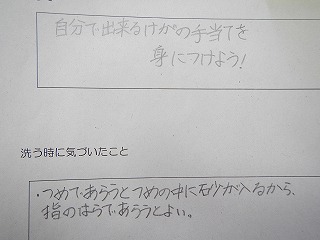 自分で出来るけがの手当てを
身につけよう!
洗う時に気づいたこと
・つめであらうとつめの中に砂が入るから、
指のはらであらうとよい。